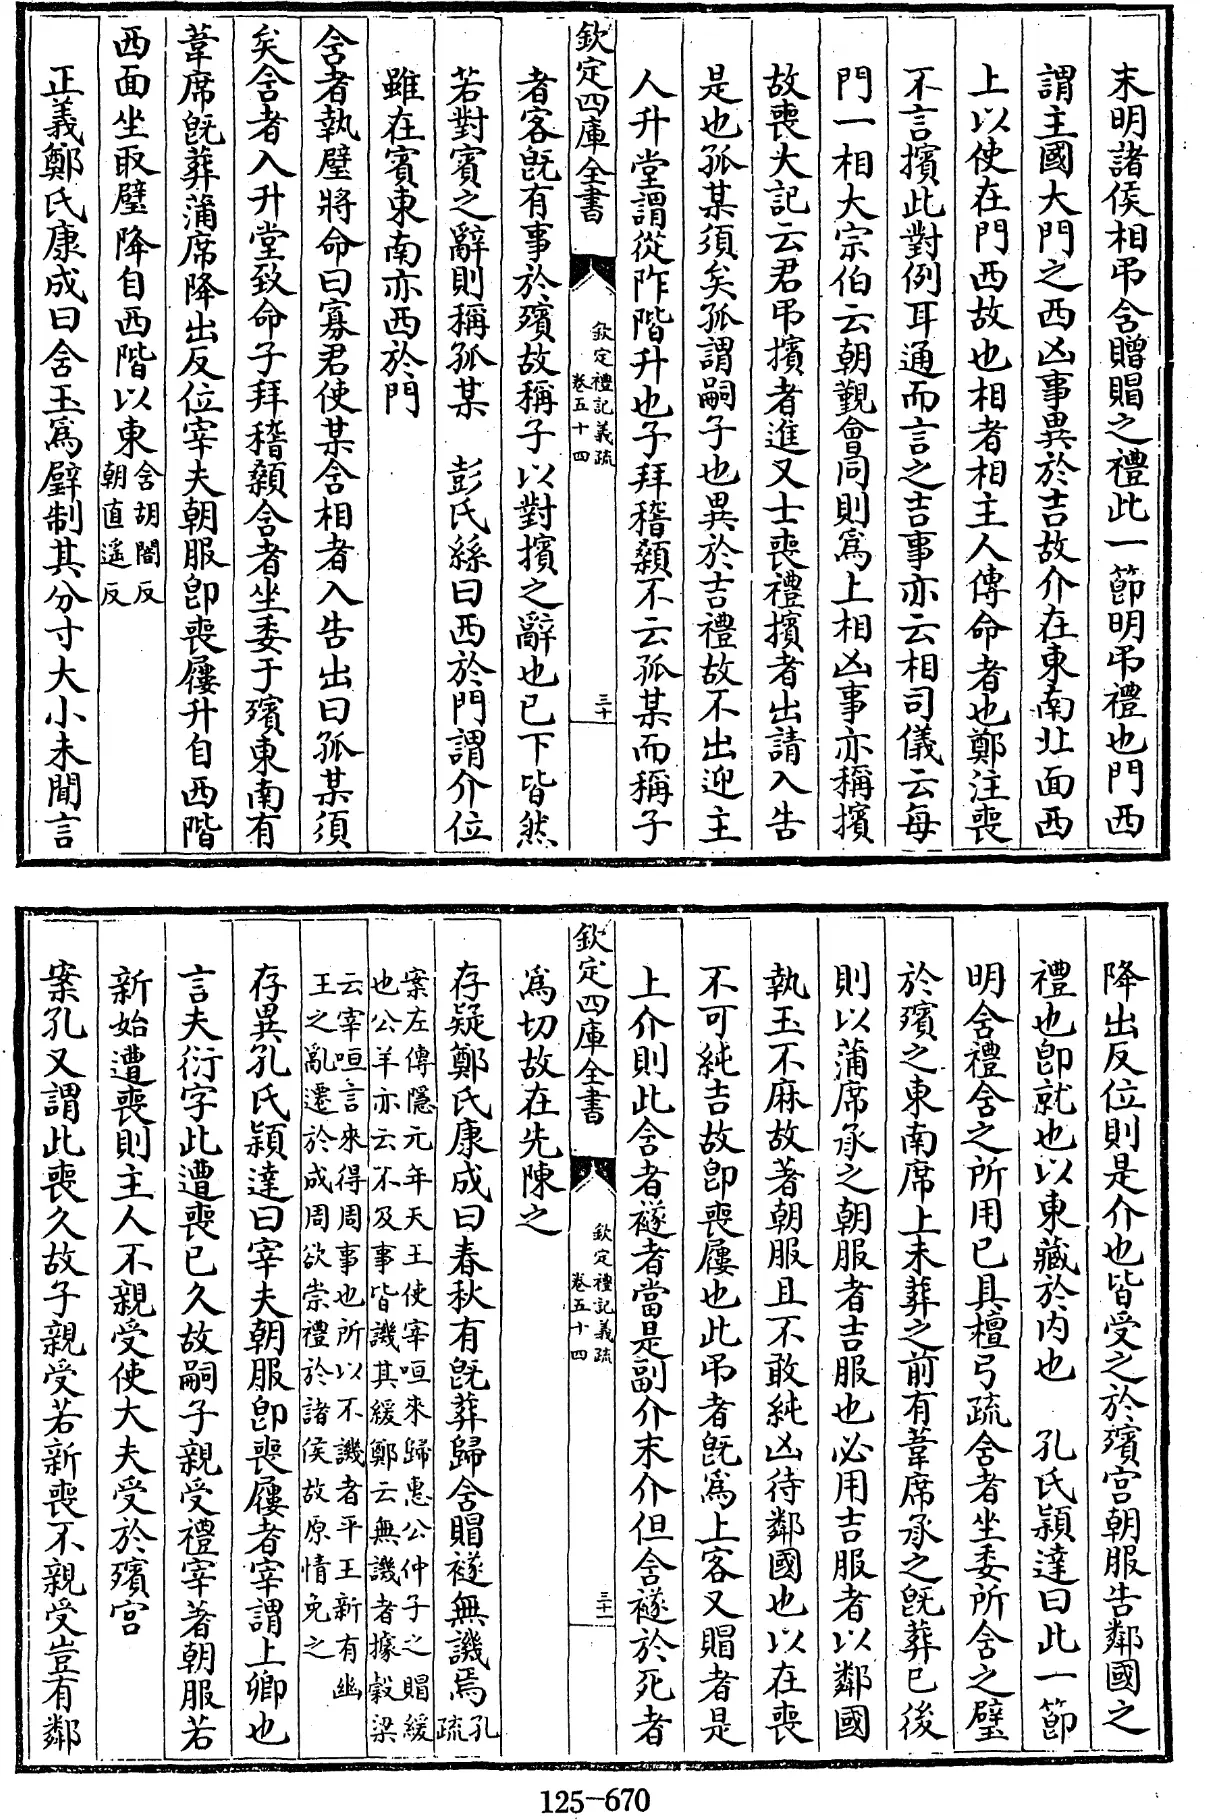 末明諸侯相弔含賵賵之禮此一節明弔禮也門西
謂主國大門之西凶事異於吉故介在東南北面西
上以使在門西故也相者相主人傳命者也鄭注喪
不言擯此對例耳通而言之吉事亦云相司儀云每
門一相大宗伯云朝覲會同則爲上相凶事亦稱擯
故喪大記云君弔擯者進又士喪禮擯者出請入告
是也孤某須矣孤謂嗣子也異於吉禮故不出迎主
人升堂謂從阼階升也子拜稽顙不云孤某而稱子
欽定四庫全書
欽定禮記義疏
卷五十四
三十
者客旣有事於殯故稱子以對擯之辭也已下皆然
若對賓之辭則稱孤某 彭氏絲曰西於門謂介位
雖在賓東南亦西於門
含者執璧將命曰寡君使某含相者入告出曰孤某須
矣含者入升堂致命子拜稽顙含者坐委于殯東南有
葦席旣葬蒲席降出反位宰夫朝服卽喪屨升自西階
西面坐取璧降自西階以東含胡闇反朝直遥反
正義鄭氏康成曰含玉爲璧制其分寸大小未聞言
降出反位則是介也皆受之於殯宮朝服告鄰國之
禮也卽就也以東藏於內也 孔氏穎達曰此一節
明含禮含之所用已具檀弓疏含者坐委所含之璧
於殯之東南席上未葬之前有葦席承之旣葬已後
則以蒲席承之朝服者吉服也必用吉服者以鄰國
執玉不麻故著朝服且不敢純凶待鄰國也以在喪
不可純吉故卽喪屨也此弔者旣爲上客又賵者是
上介則此含者襚者當是副介末介但含襚於死者
欽定四庫全書
欽定禮記義疏
卷五十四
三十一
爲切故在先陳之
存疑鄭氏康成曰春秋有旣葬歸含賵襚無譏焉孔疏
案左傳隱元年天王使宰咺來歸惠公仲子之賵緩
也公羊亦云不及事皆譏其緩鄭云無譏者據穀梁
云宰咺言來得周事也所以不譏者平王新有幽
王之亂遷於成周欲崇禮於諸侯故原情免之
存異孔氏穎達曰宰夫朝服卽喪屨者宰謂上卿也
言夫衍字此遭喪已久故嗣子親受禮宰著朝服若
新始遭喪則主人不親受使大夫受於殯宮
案孔又謂此喪久故子親受若新喪不親受豈有鄰
125-670